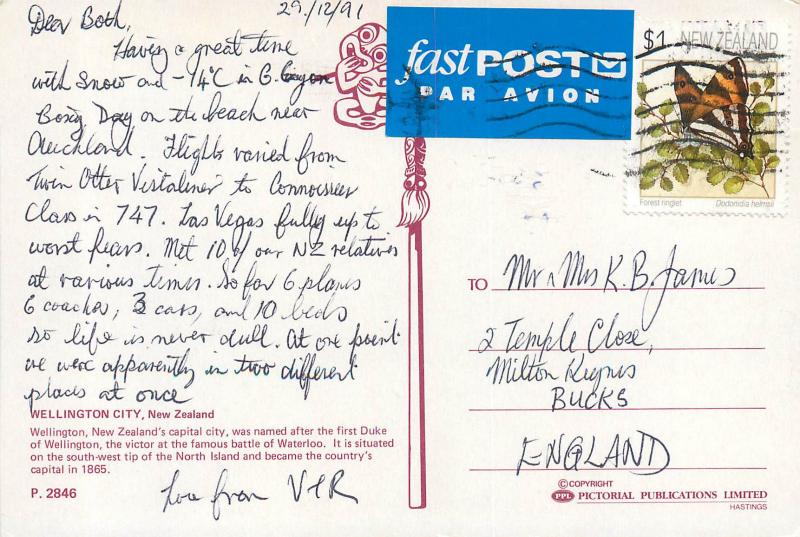 29/12/91
Dear Both,
Having a great time
with snow and -14°C in G. Canyon
Boxing Day on the beach near
Auckland. Flights varied from
Twin Otter Vistaliner to Connoisseur
Class in 747. Las Vegas fully up to
worst fears. Met 10 of our NZ relatives
at various times. So far 6 planes
6 coaches, 3 cars, and 10 beds
so life is never dull. At one point
we were apparently in two different
places at once
WELLINGTON CITY, New Zealand
Wellington, New Zealand's capital city, was named after the first Duke
of Wellington, the victor at the famous battle of Waterloo. It is situated
on the south-west tip of the North Island and became the country's
capital in 1865.
P. 2846
Love from V+R
fast POST
PAR AVION
$1 NEW ZEALAND
Forest ringlet Dodonidia helmsii
TO Mr & Mrs K.B. James
2 Temple Close,
Milton Keynes
BUCKS
ENGLAND
© COPYRIGHT
PPL PICTORIAL PUBLICATIONS LIMITED
HASTINGS